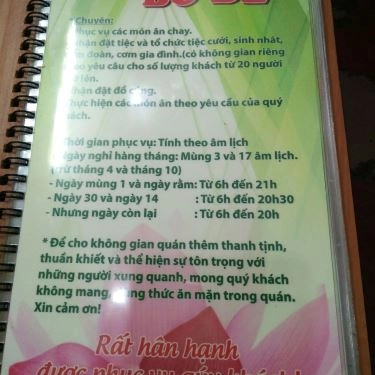 BỒ ĐỀ
*Chuyên:
Phục vụ các món ăn chay.
Nhận đặt tiệc và tổ chức tiệc cưới, sinh nhật,
đoàn, cơm gia đình.(có không gian riêng
theo yêu cầu cho số lượng khách từ 20 người
trở lên.
Nhận đặt đồ cúng.
Thực hiện các món ăn theo yêu cầu của quý
khách.
Thời gian phục vụ: Tính theo âm lịch
Ngày nghỉ hàng tháng: Mùng 3 và 17 âm lịch.
(trừ tháng 4 và tháng 10)
- Ngày mùng 1 và ngày rằm: Từ 6h đến 21h
- Ngày 30 và ngày 14 : Từ 6h đến 20h30
- Nhưng ngày còn lại : Từ 6h đến 20h
* Để cho không gian quán thêm thanh tịnh,
thuần khiết và thể hiện sự tôn trọng với
những người xung quanh, mong quý khách
không mang, dùng thức ăn mặn trong quán.
Xin cảm ơn!
Rất hân hạnh
được phục vụ qúy khách!